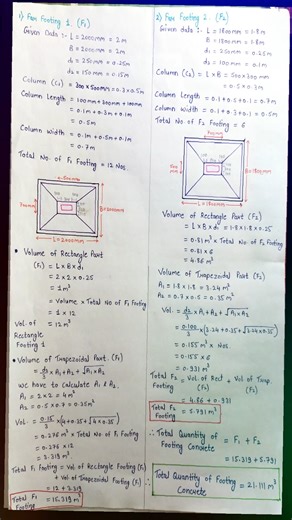 1) For Footing 1. (F1)
Given Data :- L = 2000mm = 2m
B = 2000mm = 2m
d1 = 250mm = 0.25m
d2 = 150mm = 0.15m
Column (C1) = 300x500mm = 0.3x0.5m
Column Length = 100mm+300mm+100mm
= 0.1m+0.3m+0.1m
= 0.5m
Column width = 0.1m+0.5m+0.1m
= 0.7m
Total No. of F1 Footing = 12 Nos.
500mm
700mm
B=2000mm
L=2000mm
• Volume of Rectangle Part
(F1) = L x B x d1
= 2 x 2 x 0.25
= 1m³
= Volume x Total No of F1 Footing
= 1 x 12
Vol. of = 12m³
Rectangle
Footing 1
• Volume of Trapezoidal Part. (F1)
= d2/3 x A1 + A2 + √A1xA2
We have to Calculate A1 & A2.
A1 = 2 x 2 = 4m²
A2 = 0.5 x 0.7 = 0.35m²
Vol. = 0.15/3 x (4+0.35+√4x0.35)
= 0.276m³ x Total No of F1 Footing
= 0.276 x 12
= 3.319m³
Total F1 Footing = Vol of Rectangle Footing (F1)
+ Vol of Trapezoidal Footing (F1)
= 12 + 3.319
Total F1 Footing = 15.319m³
2) For Footing 2. (F2)
Given Data :- L = 1800mm = 1.8m
B = 1800mm = 1.8m
d1 = 250mm = 0.25m
d2 = 100mm = 0.1m
Column (C2) = L x B = 500x300mm
= 0.5 x 0.3m
Column Length = 0.1+0.5+0.1 = 0.7m
Column width = 0.1+0.3+0.1 = 0.5m
Total No. of F2 Footing = 6
700mm
500mm
B=1800mm
L=1800mm
Volume of Rectangle Part (F2)
= L x B x d1 = 1.8 x 1.8 x 0.25
= 0.81m³ x Total No. of F2 Footing
= 0.81 x 6
= 4.86m³
Volume of Trapezoidal Part (F2)
A1 = 1.8 x 1.8 = 3.24m²
A2 = 0.7 x 0.5 = 0.35m²
Vol = d2/3 x A1 + A2 + √A1xA2
= 0.100/3 x (3.24+0.35+√3.24x0.35)
= 0.155m³ x Nos.
= 0.155 x 6
= 0.931m³
Total F2 Footing = Vol of Rect + Vol of Trap. Footing (F2)
= 4.86 + 0.931
Total F2 Footing = 5.791m³
∴ Total Quantity of Footing Concrete = F1 + F2
= 15.319 + 5.791
Total Quantity of Footing Concrete = 21.111m³